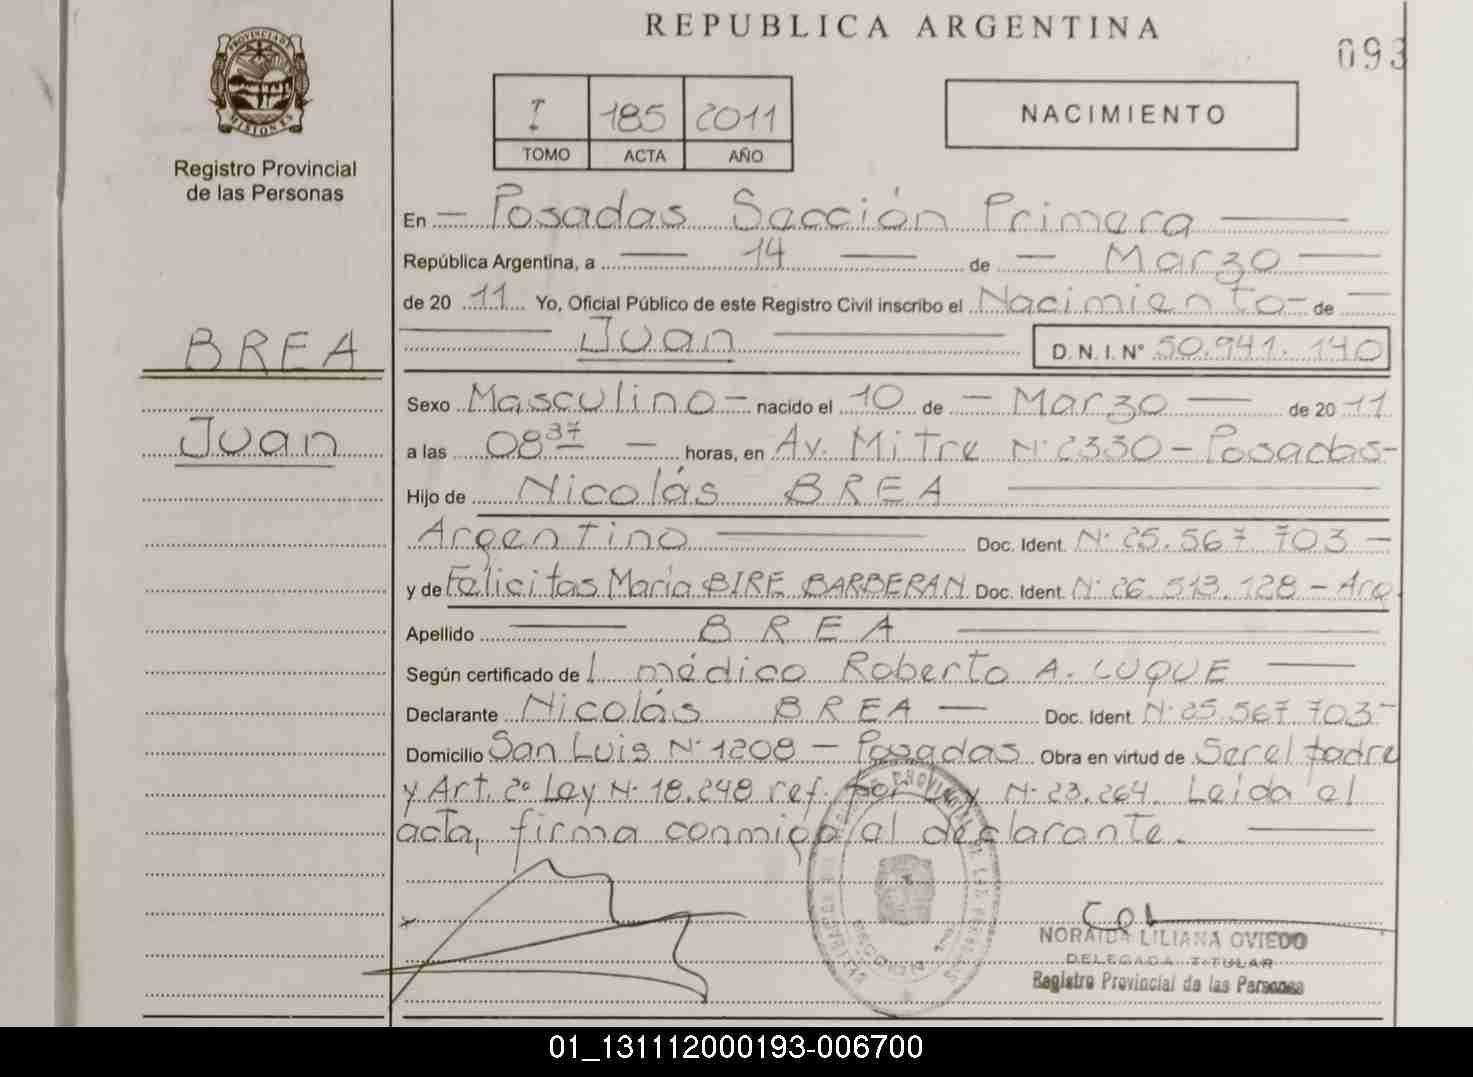 REPUBLICA ARGENTINA
093
PROVINCIA DE MISIONES
Registro Provincial
de las Personas
I 185 2011
TOMO ACTA AÑO
NACIMIENTO
En Posadas Sección Primera
República Argentina, a 14 de Marzo
de 20 11 Yo, Oficial Público de este Registro Civil inscribo el Nacimiento de
Juan D. N. I. N° 50.941.140
BREA
Juan
Sexo Masculino nacido el 10 de Marzo de 20 11
a las 08 37 horas, en Av. Mitre N° 2330 - Posadas
Hijo de Nicolás BREA
Argentino Doc. Ident. N° 25.567.703
y de Felicitas María BIRE BARBERAN Doc. Ident. N° 26.513.128 - Arg.
Apellido BREA
Según certificado de l médico Roberto A. LUQUE
Declarante Nicolás BREA Doc. Ident. N° 25.567.703
Domicilio San Luis N° 1208 - Posadas Obra en virtud de Ser el Padre
y Art. 2° Ley N° 18.248 ref. por Ley N° 23.264. Leida el
acta, firma conmigo el declarante.
NORAIDA LILIANA OVIEDO
DELEGADA TITULAR
Registro Provincial de las Personas
01_131112000193-006700